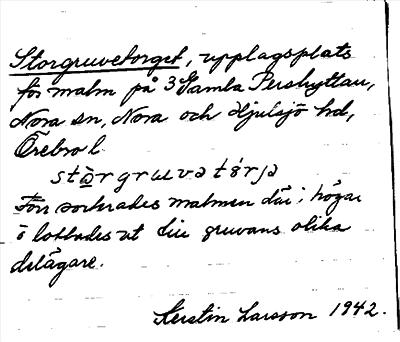 Storgruvetorget, upplagsplats
för malm på 3 Gamla Pershyttan,
Nora sn, Nora och Hjulsjö hd,
Örebro l.
stòrgruvatórja
Förr sorterades malmen där i högar
o lottades ut till gruvans olika
delägare.
Kerstin Larsson 1942.